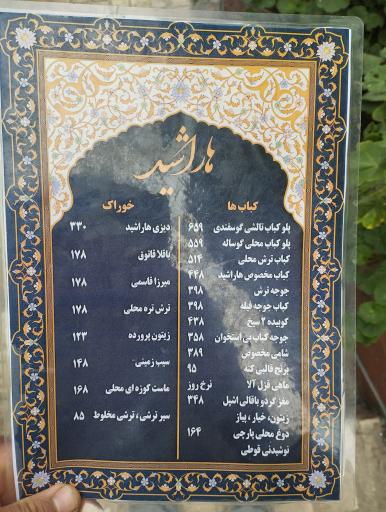 هاراشید
کباب ها
پلو کباب تالشی گوسفندی ۶۵۹
پلو کباب محلی گوساله ۵۵۹
کباب ترش محلی ۵۱۴
کباب مخصوص هاراشید ۴۴۸
جوجه ترش ۳۹۸
کباب جوجه فیله ۳۹۸
کوبیده ۲ سیخ ۴۳۸
جوجه کباب بی استخوان ۳۵۸
شامی مخصوص ۳۸۹
برنج قالبی کته ۹۵
ماهی قزل آلا نرخ روز
مغز گردو باقالی اشپل ۳۴۸
زیتون، خیار، پیاز
دوغ محلی پارچی ۱۶۴
نوشیدنی قوطی
خوراک
دیزی هاراشید ۳۳۰
باقلا قاتوق ۱۷۸
میرزا قاسمی ۱۷۸
ترش تره محلی ۱۷۸
زیتون پرورده ۱۲۳
سیب زمینی ۱۴۸
ماست کوزه ای محلی ۱۶۸
سیر ترشی، ترشی مخلوط ۸۵